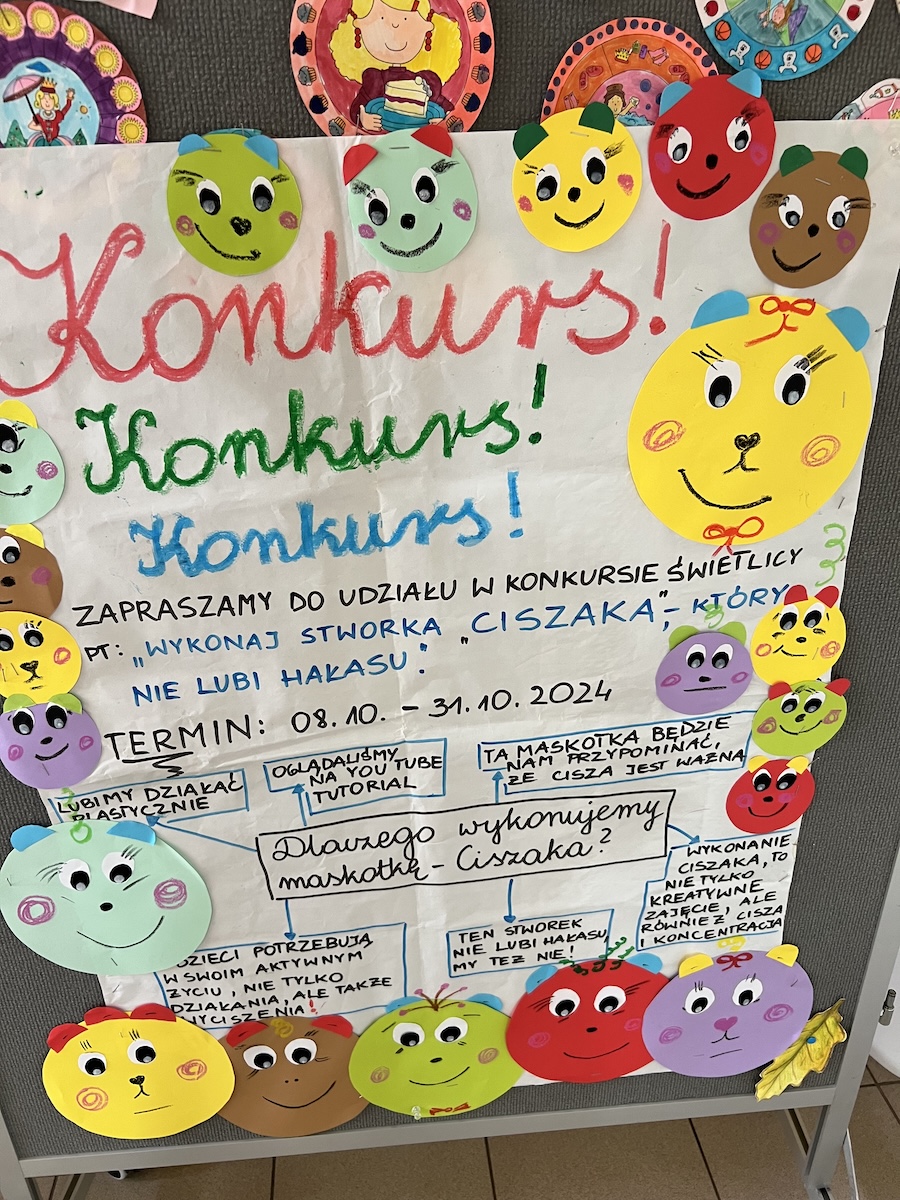 Konkurs!
Konkurs!
Konkurs!
ZAPRASZAMY DO UDZIAŁU W KONKURSIE ŚWIETLICY
PT: „WYKONAJ STWORKA "CISZAKA", - KTÓRY
NIE LUBI HAŁASU".
TERMIN: 08.10. - 31.10.2024
LUBIMY DZIAŁAĆ
PLASTYCZNIE
OGLĄDALIŚMY
NA YOU TUBE
TUTORIAL
TA MASKOTKA BĘDZIE
NAM PRZYPOMINAĆ,
ŻE CISZA JEST WAŻNA
Dlaczego wykonujemy
maskotkę - Ciszaka?
WYKONANIE
CISZAKA, TO
NIE TYLKO
KREATYWNE
ZAJĘCIE, ALE
RÓWNIEŻ CISZA
I KONCENTRACJA
DZIECI POTRZEBUJĄ
W SWOIM AKTYWNYM
ŻYCIU, NIE TYLKO
DZIAŁANIA, ALE TAKŻE
WYCISZENIA!
TEN STWOREK
NIE LUBI HAŁASU,
MY TEŻ NIE!